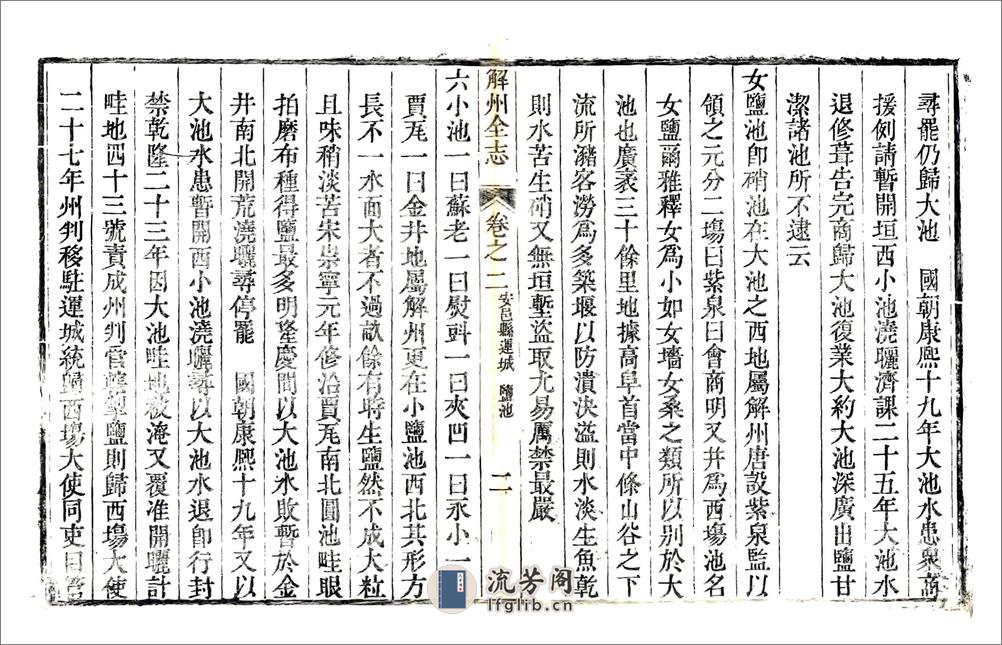 尋罷仍歸大池　國朝康熙十九年大池水患衆商
援例請暫開垣西小池澆曬濟課二十五年大池水
退修葺告完商歸大池復業大約大池深廣出鹽甘
潔諸池所不逮云
女鹽池卽硝池在大池之西地屬解州唐設紫泉監以
領之元分二場曰紫泉曰會商明又并爲西場池名
女鹽爾雅釋女爲小如女墻女桑之類所以別於大
池也廣袤三十餘里地據高阜首當中條山谷之下
流所瀦客澇爲多築堰以防潰決溢則水淡生魚乾
則水苦生硝又無垣塹盜取尤易厲禁最嚴
解州全志　卷之二　安邑縣運城　鹽池　二
六小池一曰蘇老一曰熨㪷一曰夾凹一曰永小一曰
賈瓦一曰金井地屬解州更在小鹽池西北其形方
長不一水面大者不過畝餘有時生鹽然不成大粒
且味稍淡苦宋崇寧元年修治賈瓦南北圓池畦眼
拍磨布種得鹽最多明隆慶間以大池水敗暫於金
井南北開荒澆曬尋停罷　國朝康熙十九年又以
大池水患暫開西小池澆曬尋以大池水退卽行封
禁乾隆二十三年因大池畦地被淹又覆准開曬計
畦地四十三號責成州判管轄鹽則歸西場大使
二十七年州判移駐運城統歸西場大使同吏目管
流芳阁
lfglib.cn